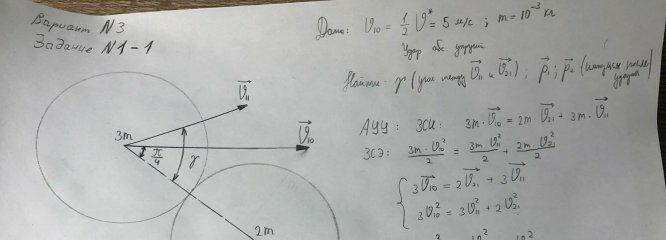 Вариант N3
Задание N1-1
Дано: V₁₀ = 1/2 V* = 5 м/с ; m = 10⁻³ кг
Удар абс. упругий
Найти: γ (угол между V₁₁ и V₂₁) ; p₁ ; p₂ (импульсы после удара)
АУУ: ЗСИ: 3m · V₁₀ = 2m V₂₁ + 3m · V₁₁
ЗСЭ: 3m · V₁₀² / 2 = 3m V₁₁² / 2 + 2m V₂₁² / 2
3V₁₀ = 2V₂₁ + 3V₁₁
3V₁₀² = 3V₁₁² + 2V₂₁²
V₁₁
V₁₀
3m
π/4
γ
2m